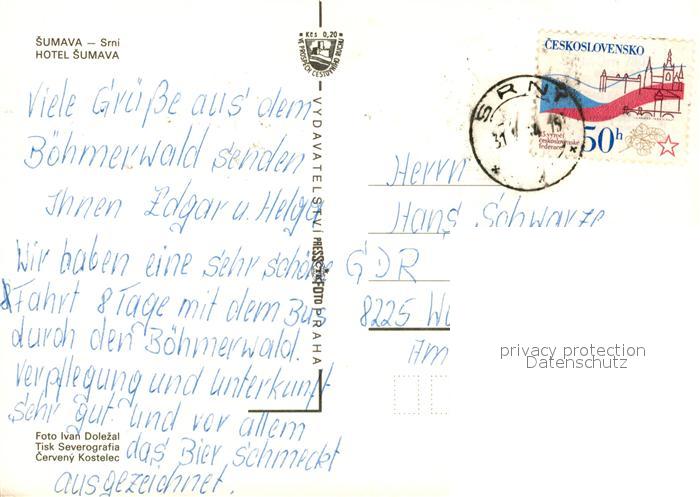 ŠUMAVA — Srní
HOTEL ŠUMAVA
Kčs 0,20
VE PROSPĚCH CESTOVNÍHO RUCHU
Viele Grüße aus dem
Böhmerwald senden
Ihnen Edgar u. Helga
Wir haben eine sehr schöne
Fahrt 8 Tage mit dem Bus
durch den Böhmerwald.
Verpflegung und Unterkunft
sehr gut und vor allem
das Bier schmeckt
ausgezeichnet.
Foto Ivan Doležal
Tisk Severografia
Červený Kostelec
VYDAVATELSTVÍ PRESSFOTO PRAHA
ČESKOSLOVENSKO
československé
federace
50h
SRNÍ
Herrn
Hans Schwarze
GDR
8225
Am
privacy protection
Datenschutz